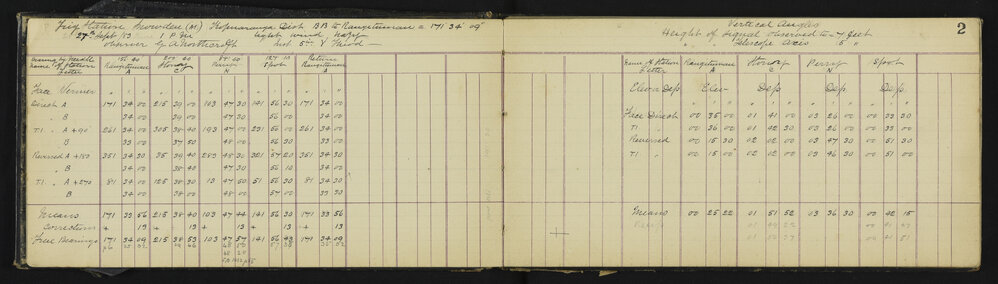 Trig Station Snowden (M) Kopuaranga Dist BB to Rangitumau = 171° 34' 09"
27th Sept 83 1 P.M. light wind, hazy
Observer G. A. Northcroft Inst 5in
Bearing by Needle 152 40 200 00 88 20 127 10 Return
Name of Station Rangitumau Stoney Perry Spot Rangitumau
Letter A C N A
Face Vernier
Direct A 171 34 00 215 39 00 103 47 30 141 56 30 171 34 00
" B 34 00 39 00 47 30 56 00 34 00
T.I. " A+90° 261 34 00 305 38 40 193 47 00 231 56 00 261 34 00
B 33 00 37 50 48 00 56 30 33 00
Reversed A+180 351 34 30 35 39 40 283 48 30 321 57 20 351 34 30
B 34 00 38 40 47 30 56 10 34 00
T.I. " A+270 81 34 30 125 38 30 13 47 50 51 56 30 81 34 30
B 34 00 38 00 48 00 57 00 33 30
Means 171 33 56 215 38 40 103 47 44 141 56 30 171 33 56
Corrections + 13 + 13 + 13 + 13 + 13
True Bearings 171 34 09 215 38 53 103 47 57 141 56 43 171 34 09
Vertical Angles 2
Height of Signal observed to = 7 feet
" " Telescope Axis 5 "
Name of Station Rangitumau Stoney Perry Spot
Letter A C N
Elev or Dep Elev Dep Dep Dep
Face Direct 00 35 00 01 41 00 03 26 00 00 33 30
T.I. " 00 36 00 01 42 30 03 26 00 00 33 00
Reversed 00 15 30 02 02 00 03 47 30 00 51 30
T.I. " 00 15 00 02 02 00 03 46 30 00 51 00
Means 00 25 22 01 51 52 03 36 30 00 42 15